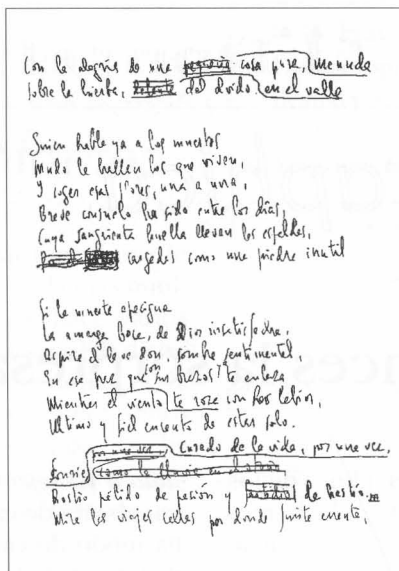 Con la alegria de una cosa pura, menuda
Sobre la hierba, del olvido, en el valle
Quien habla ya a los muertos
Mudo le hallan los que viven,
Y coger esas flores, una a una,
Breve consuelo ha sido entre los días,
Cuya sangrienta huella llevan las espaldas,
cargadas como una piedra inutil
Si la muerte apacigua
La amarga boca, de Dios insatisfecha,
Aspira el leve don, sombra sentimental,
En esa paz que con brazos te enlaza
Mientras el viento te roza con labios,
Ultimo y fiel encanto de estar solo.
Curado de la vida, por una vez,
Sonríe como la lluvia
Rostro pálido de pasión y de hastío.
Mira las viejas calles por donde fuiste errante,